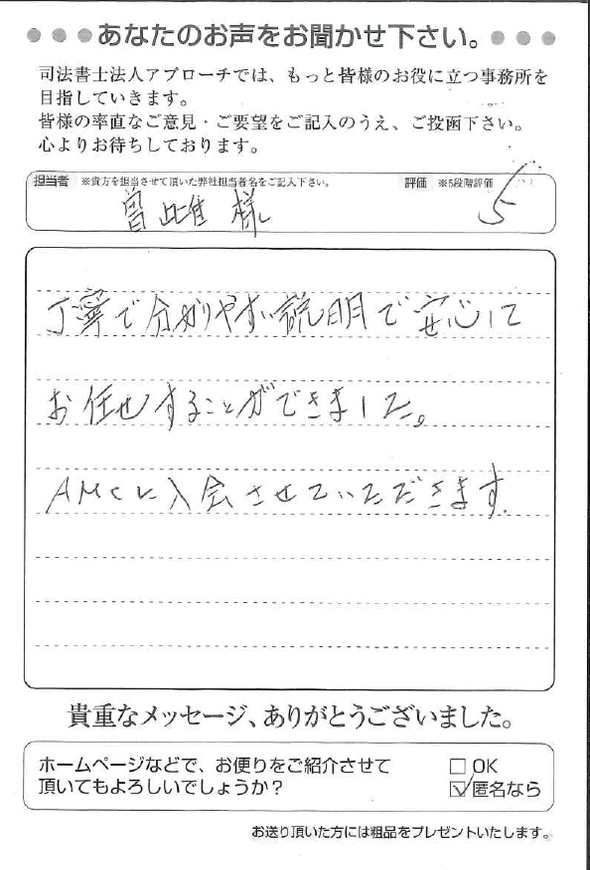 あなたのお声をお聞かせ下さい。
司法書士法人アプローチでは、もっと皆様のお役に立つ事務所を
目指していきます。
皆様の率直なご意見・ご要望をご記入のうえ、ご投函下さい。
心よりお待ちしております。
担当者 ※貴方を担当させて頂いた弊社担当者名をご記入下さい。 評価 ※5段階評価
曽比 様 5
丁寧で分かりやすい説明で安心して
お任せすることができました。
AMCに入会させていただきます。
貴重なメッセージ、ありがとうございました。
ホームページなどで、お便りをご紹介させて
頂いてもよろしいでしょうか?
□ OK
☑ 匿名なら
お送り頂いた方には粗品をプレゼントいたします。